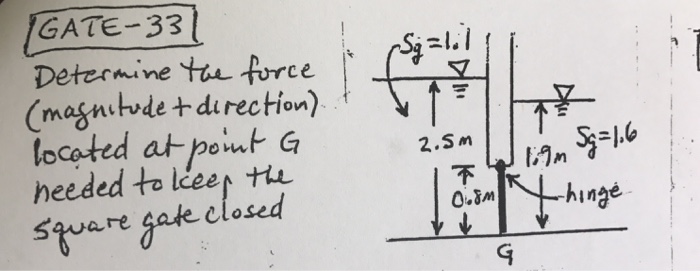 GATE-33
Determine the force
(magnitude + direction)
located at point G
needed to keep the
square gate closed
Sg=1.1
2.5m
0.8m
1.9m
Sg=1.6
hinge
G